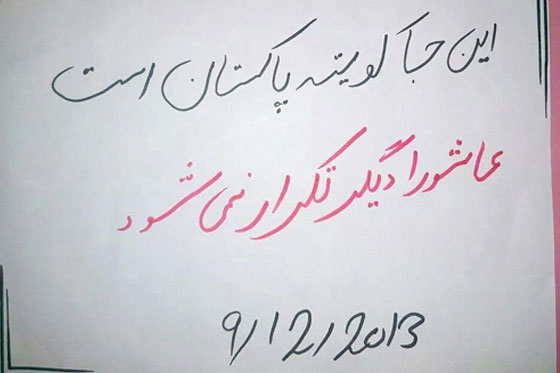 این جا کویته پاکستان است
عاشورا دیگر تکرار نمی شود
9/12/2013